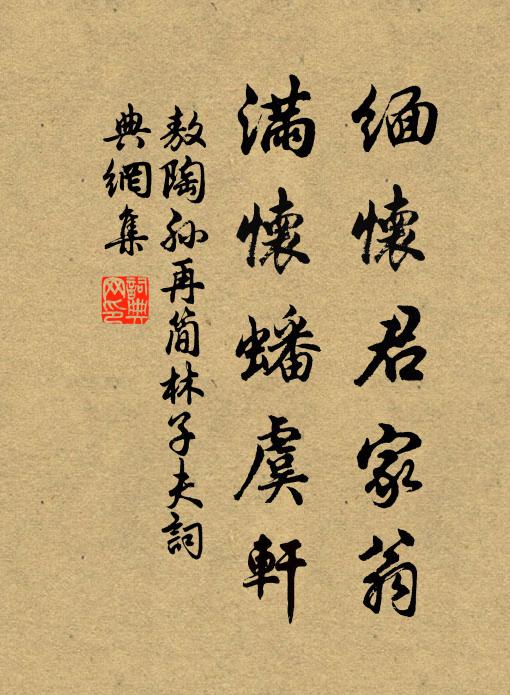 緬懷君家翁
滿懷蟠虞軒
敖陶孫再簡林子夫詞
典網集
詞典
网印